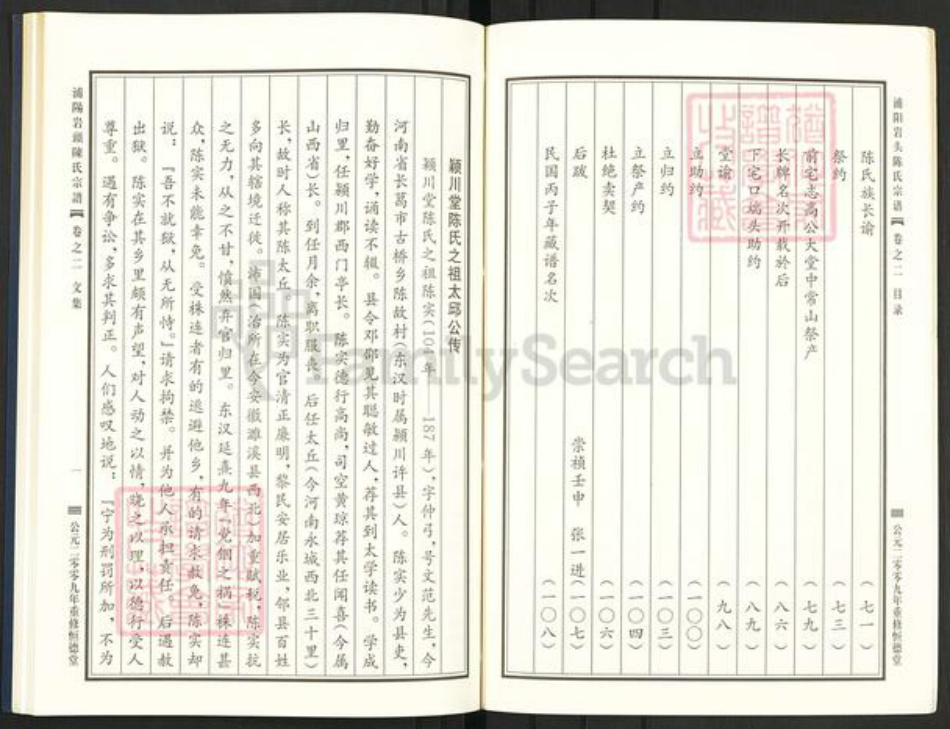 浦阳岩头陈氏宗谱 卷之二 目录
公元二零零九年重修恒德堂
陈氏族长谕 (七一)
祭约 (七三)
前宅志高公大堂中常山祭产 (七九)
长牌名次开载於后 (八六)
下宅口塢头助约 (八九)
堂谕 (九八)
立助约 (一〇〇)
立归约 (一〇三)
立祭产约 (一〇四)
杜绝卖契 (一〇六)
后跋 崇祯壬申 张一进(一〇七)
民国丙子年藏谱名次 (一〇八)
颖川堂陈氏之祖太邱公传
颖川堂陈氏之祖陈实(104年——187年),字仲弓,号文范先生,今
河南省长葛市古桥乡陈故村(东汉时属颍川许县)人。陈实少为县吏,
勤奋好学,诵读不辍。县令邓邵见其聪敏过人,荐其到太学读书。学成
归里,任颍川郡西门亭长。陈实德行高尚,司空黄琼荐其任闻喜(今属
山西省)长。到任月余,离职服丧。后任太丘(今河南永城西北三十里)
长,故时人称其陈太丘。陈实为官清正廉明,黎民安居乐业,邻县百姓
多向其辖境迁徙。沛国(治所在今安徽濉溪县西北)加重赋税,陈实抗
之无力,从之不甘,愤然弃官归里。东汉延熹九年“党锢之祸”株连甚
众,陈实未能幸免。受株连者有的逃避他乡,有的请求赦免,陈实却
说:『吾不就狱,从无所恃。』请求拘禁。并为他人承担责任。后遇赦
出狱。陈实在其乡里颇有声望,对人动之以情,晓之以理,以德行受人
尊重。遇有争讼,多求其判正。人们感叹地说:『宁为刑罚所加,不为
浦陽岩頭陳氏宗譜 卷之二 文集
一
公元二零零九年重修恒德堂
FamilySearch